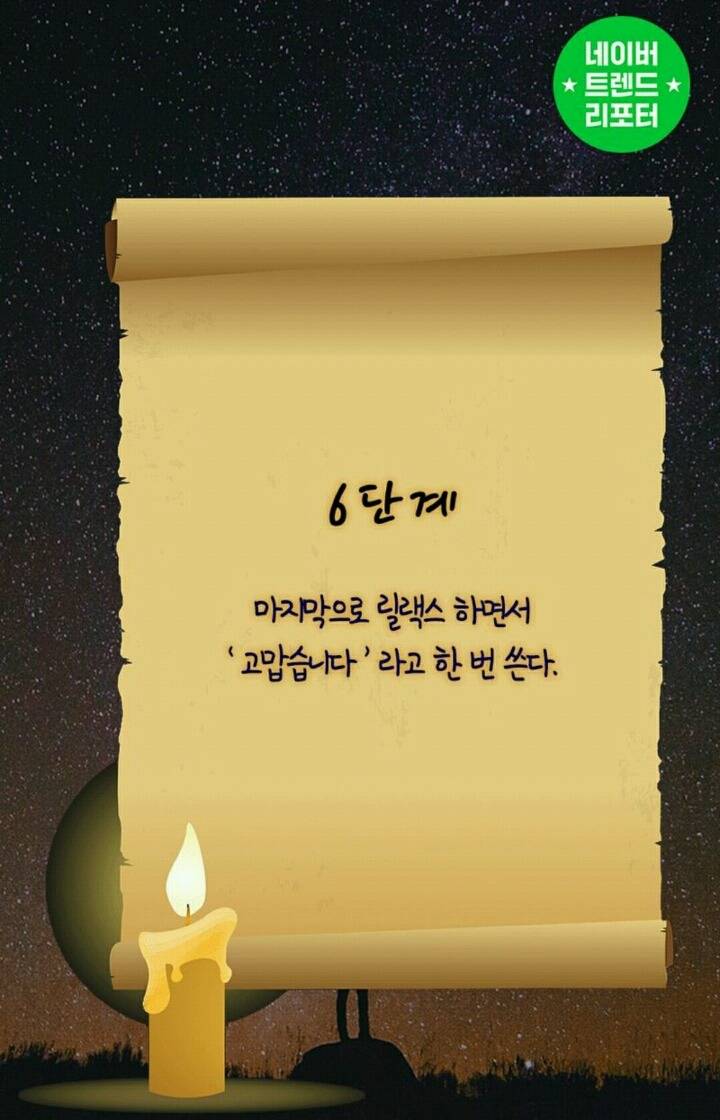 네이버
★ 트렌드 ★
리포터
6단계
마지막으로 릴랙스 하면서
‘고맙습니다’ 라고 한 번 쓴다.